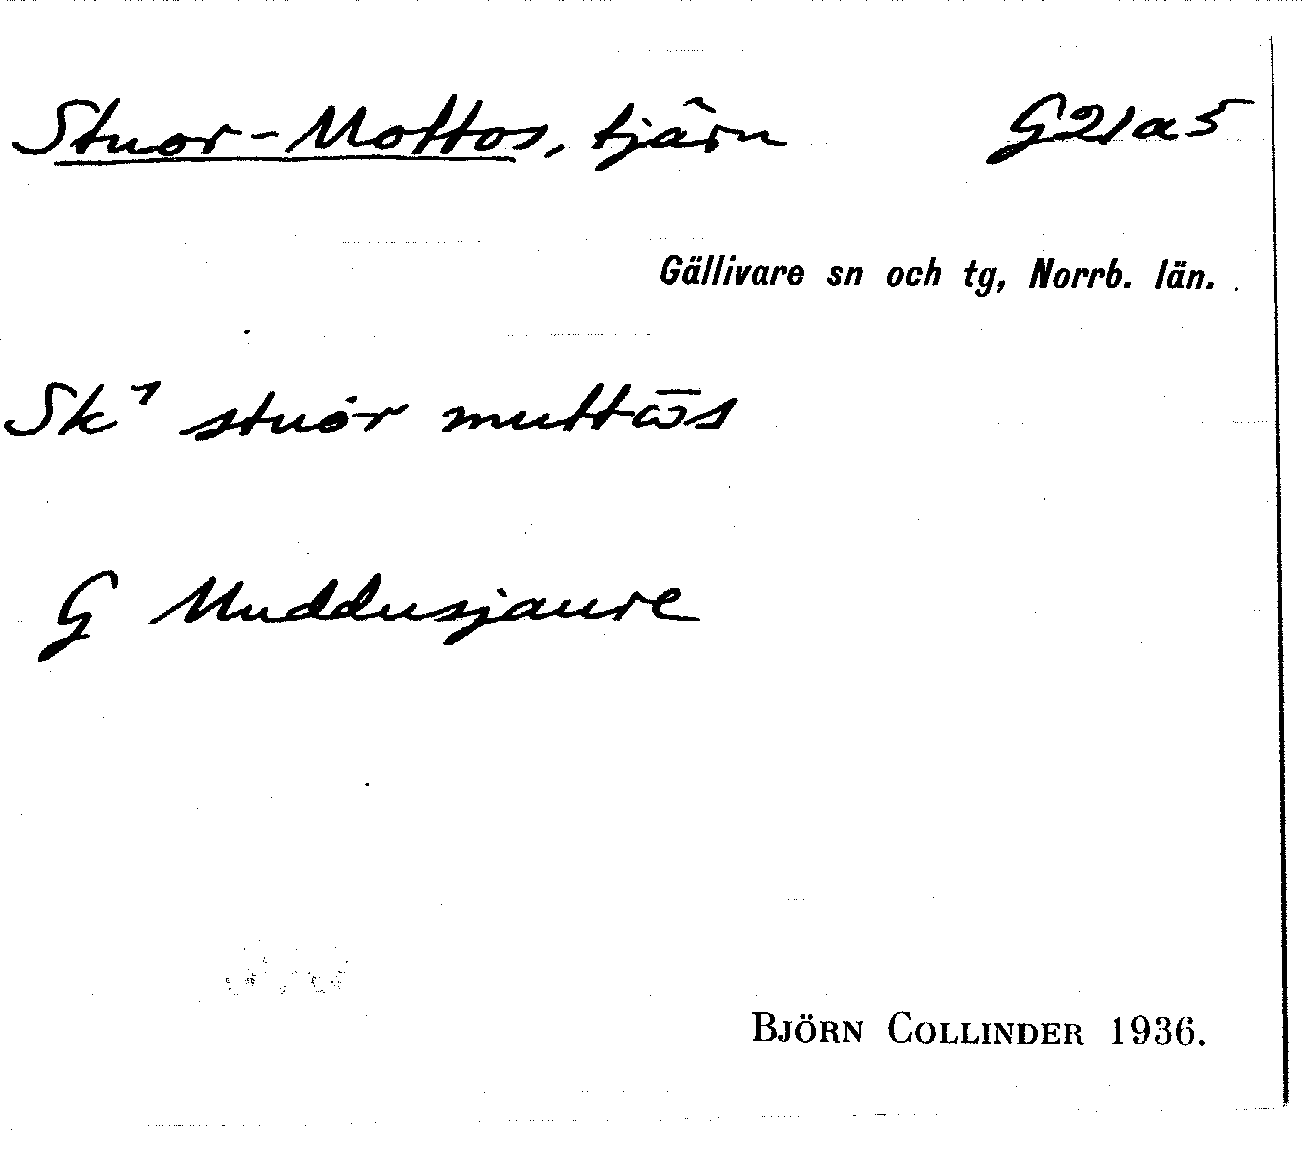 Stuor-Mottos, tjärn G21a5
Gällivare sn och tg, Norrb. län.
Sk⁷ stuȯr muttω̄s
G Muddusjaure
BJÖRN COLLINDER 1936.